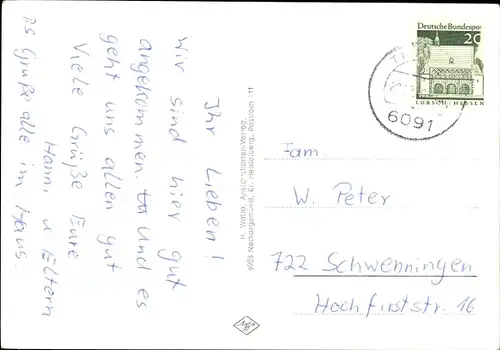 Ihr Lieben!
Wir sind hier gut
angekommen. Und es
geht uns allen gut
Viele Grüße Eure
Hanni u Eltern
PS Grüße alle im Haus.
H. Wetlin, Ansichtskarten-Verlag,
6903 Neckargemünd, Kr. Heidelberg, Postfach 111
Deutsche Bundespost
20
LORSCH/HESSEN
6091
Fam.
W. Peter
722 Schwenningen
Hochfirststr. 16
Agfa